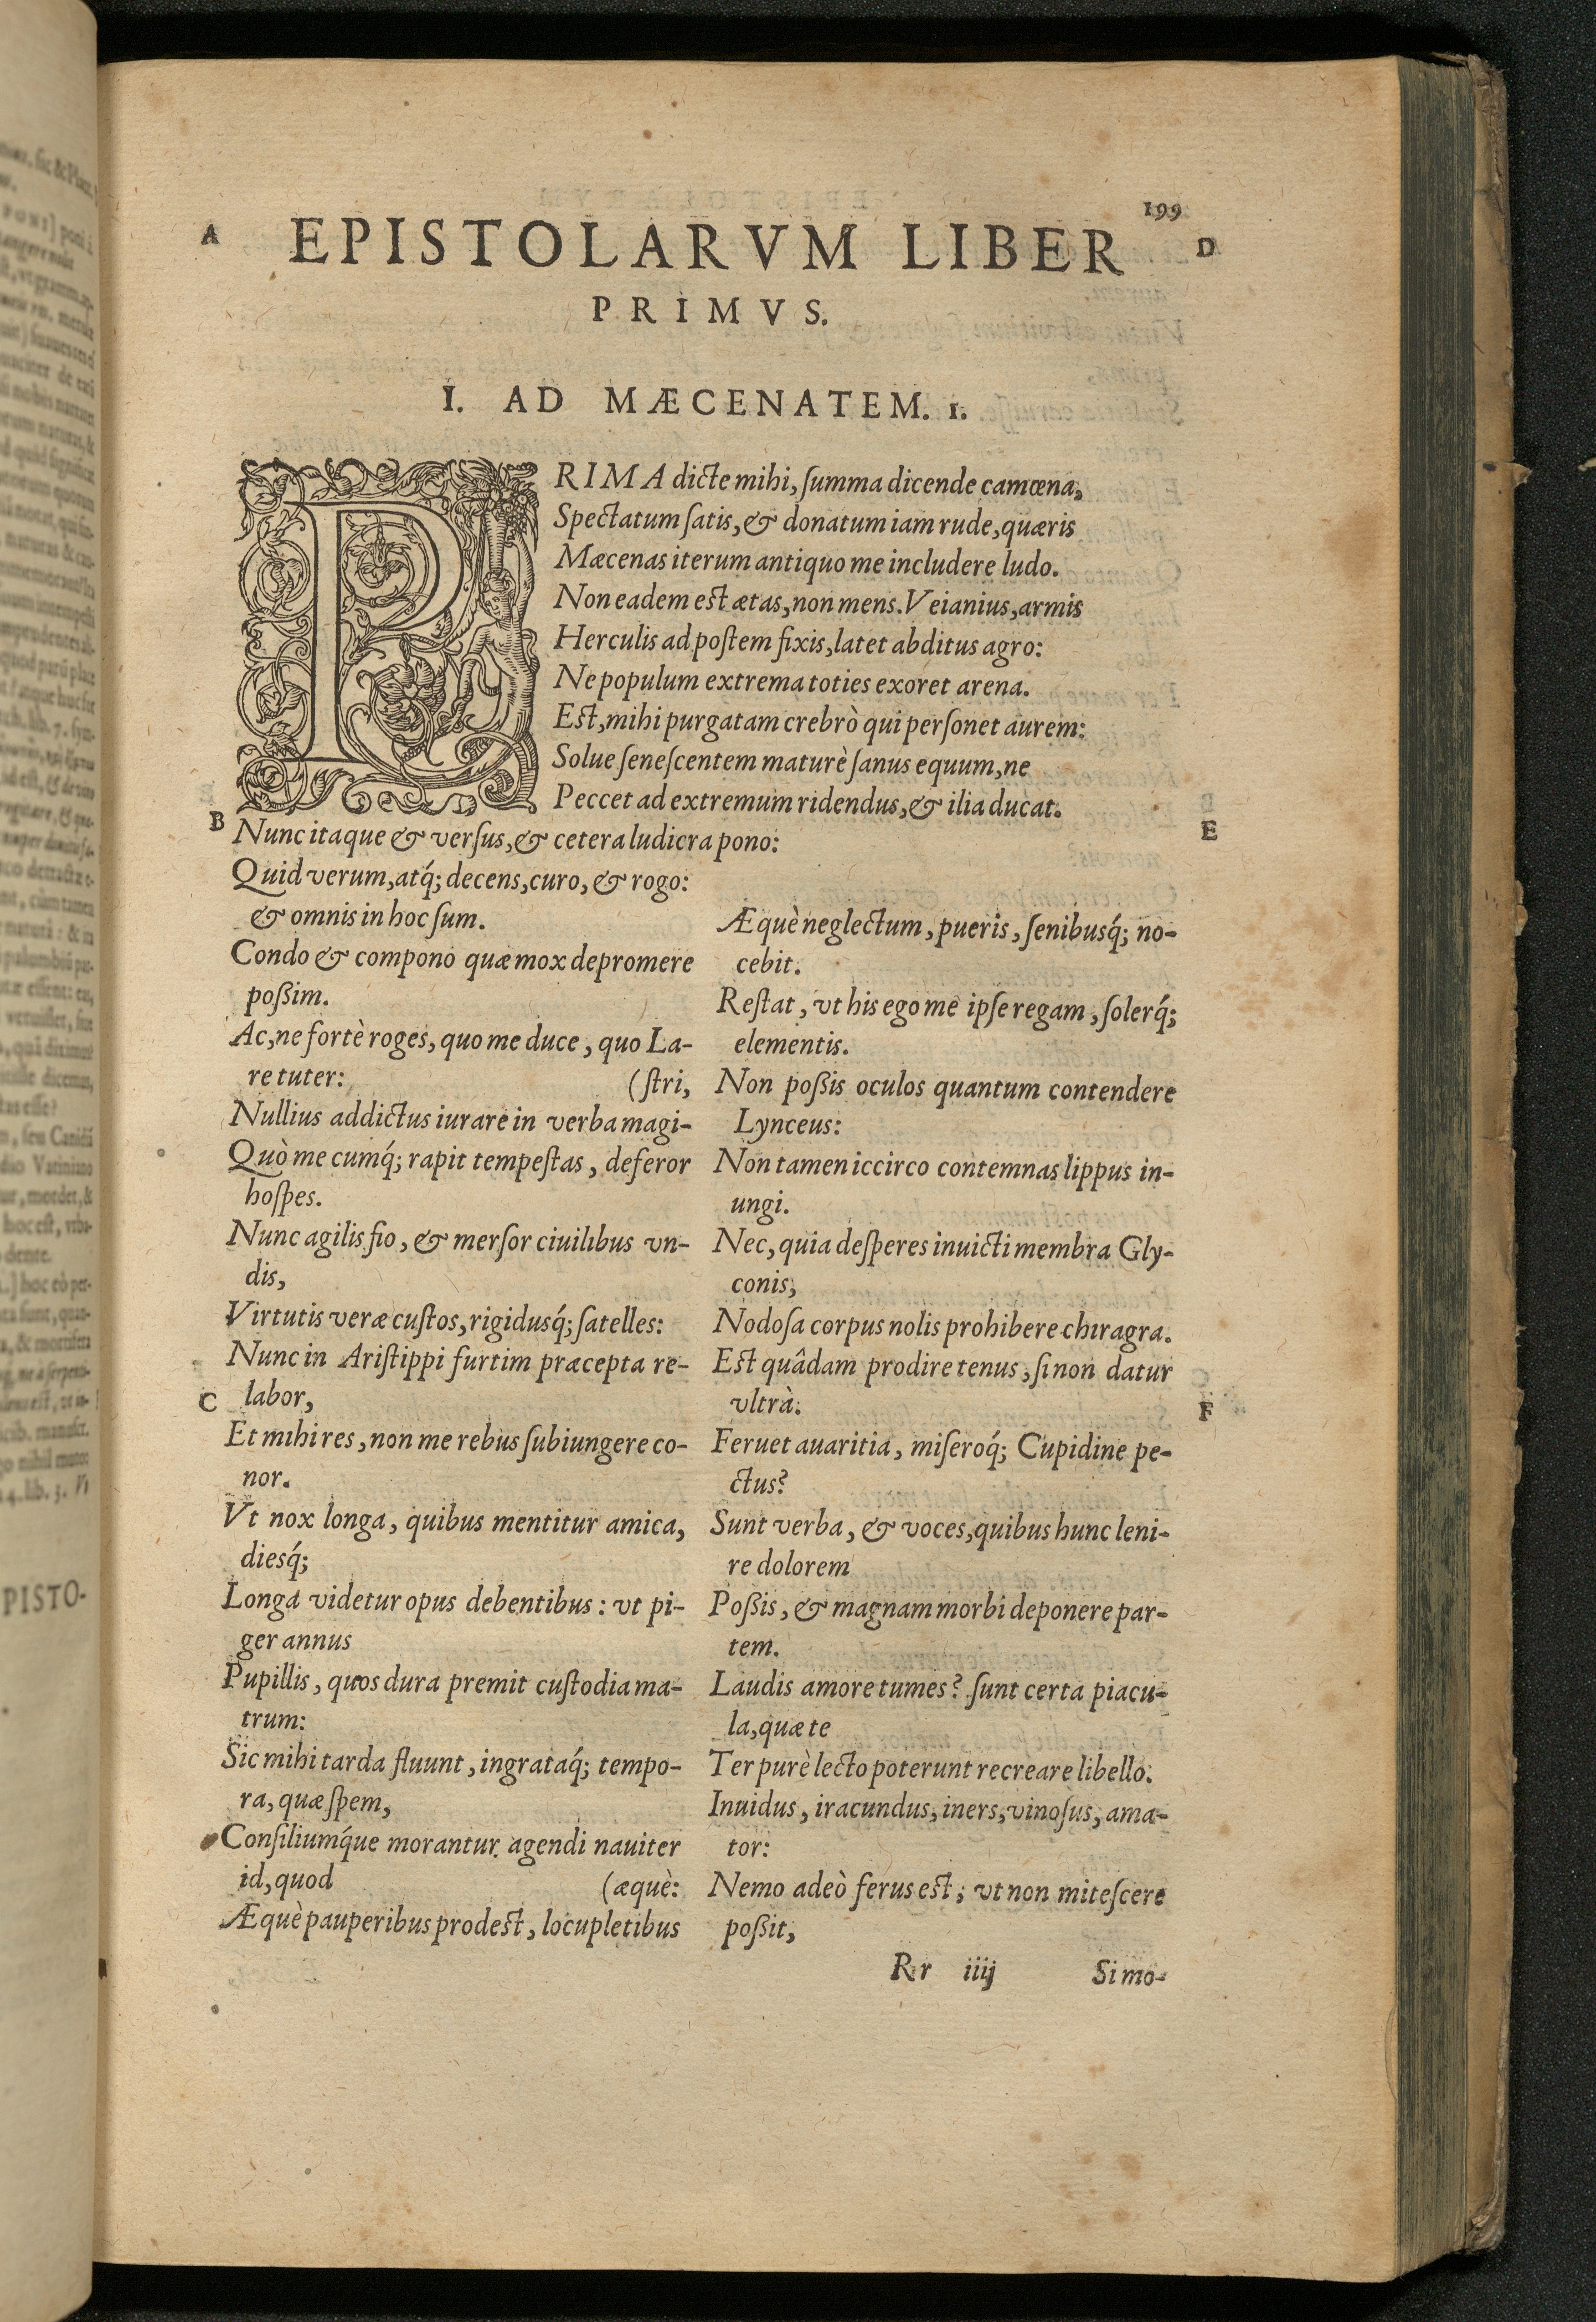 199
A
D
EPISTOLARVM LIBER
PRIMVS.
I. AD MÆCENATEM. 1.
PRIMA dicte mihi, ſumma dicende camœna,
Spectatum ſatis, & donatum iam rude, quæris
Mæcenas iterum antiquo me includere ludo.
Non eadem est ætas, non mens. Veianius, armis
Herculis ad poſtem fixis, latet abditus agro:
Ne populum extrema toties exoret arena.
Est, mihi purgatam crebrò qui perſonet aurem:
Solue ſeneſcentem maturè ſanus equum, ne
Peccet ad extremum ridendus, & ilia ducat.
B
E
Nunc itaque & verſus, & cetera ludicra pono:
Quid verum, atq́; decens, curo, & rogo:
& omnis in hoc ſum.
Condo & compono quæ mox depromere
poßim.
Ac, ne fortè roges, quo me duce, quo La-
re tuter: (ſtri,
Nullius addictus iurare in verba magi-
Quò me cumq́; rapit tempeſtas, deferor
hoſpes.
Nunc agilis fio, & merſor ciuilibus vn-
dis,
Virtutis veræ cuſtos, rigidusq́; ſatelles:
Nunc in Ariſtippi furtim præcepta re-
C
labor,
Et mihi res, non me rebus ſubiungere co-
nor.
Vt nox longa, quibus mentitur amica,
diesq́;
Longa videtur opus debentibus: vt pi-
ger annus
Pupillis, quos dura premit cuſtodia ma-
trum:
Sic mihi tarda fluunt, ingrataq́; tempo-
ra, quæ ſpem,
Conſiliumq́ue morantur agendi nauiter
id, quod (æquè:
Æquè pauperibus prodest, locupletibus
Æquè neglectum, pueris, ſenibusq́; no-
cebit.
Reſtat, vt his ego me ipſe regam, ſolerq́;
elementis.
Non poßis oculos quantum contendere
Lynceus:
Non tamen iccirco contemnas lippus in-
ungi.
Nec, quia deſperes inuicti membra Gly-
conis,
Nodoſa corpus nolis prohibere chiragra.
Est quâdam prodire tenus, ſi non datur
vltrà.
F
Feruet auaritia, miſeroq́; Cupidine pe-
ctus?
Sunt verba, & voces, quibus hunc leni-
re dolorem
Poßis, & magnam morbi deponere par-
tem.
Laudis amore tumes? ſunt certa piacu-
la, quæ te
Ter purè lecto poterunt recreare libello.
Inuidus, iracundus, iners, vinoſus, ama-
tor:
Nemo adeò ferus est; vt non miteſcere
poßit,
Rr iiij
Si mo-
PISTO-